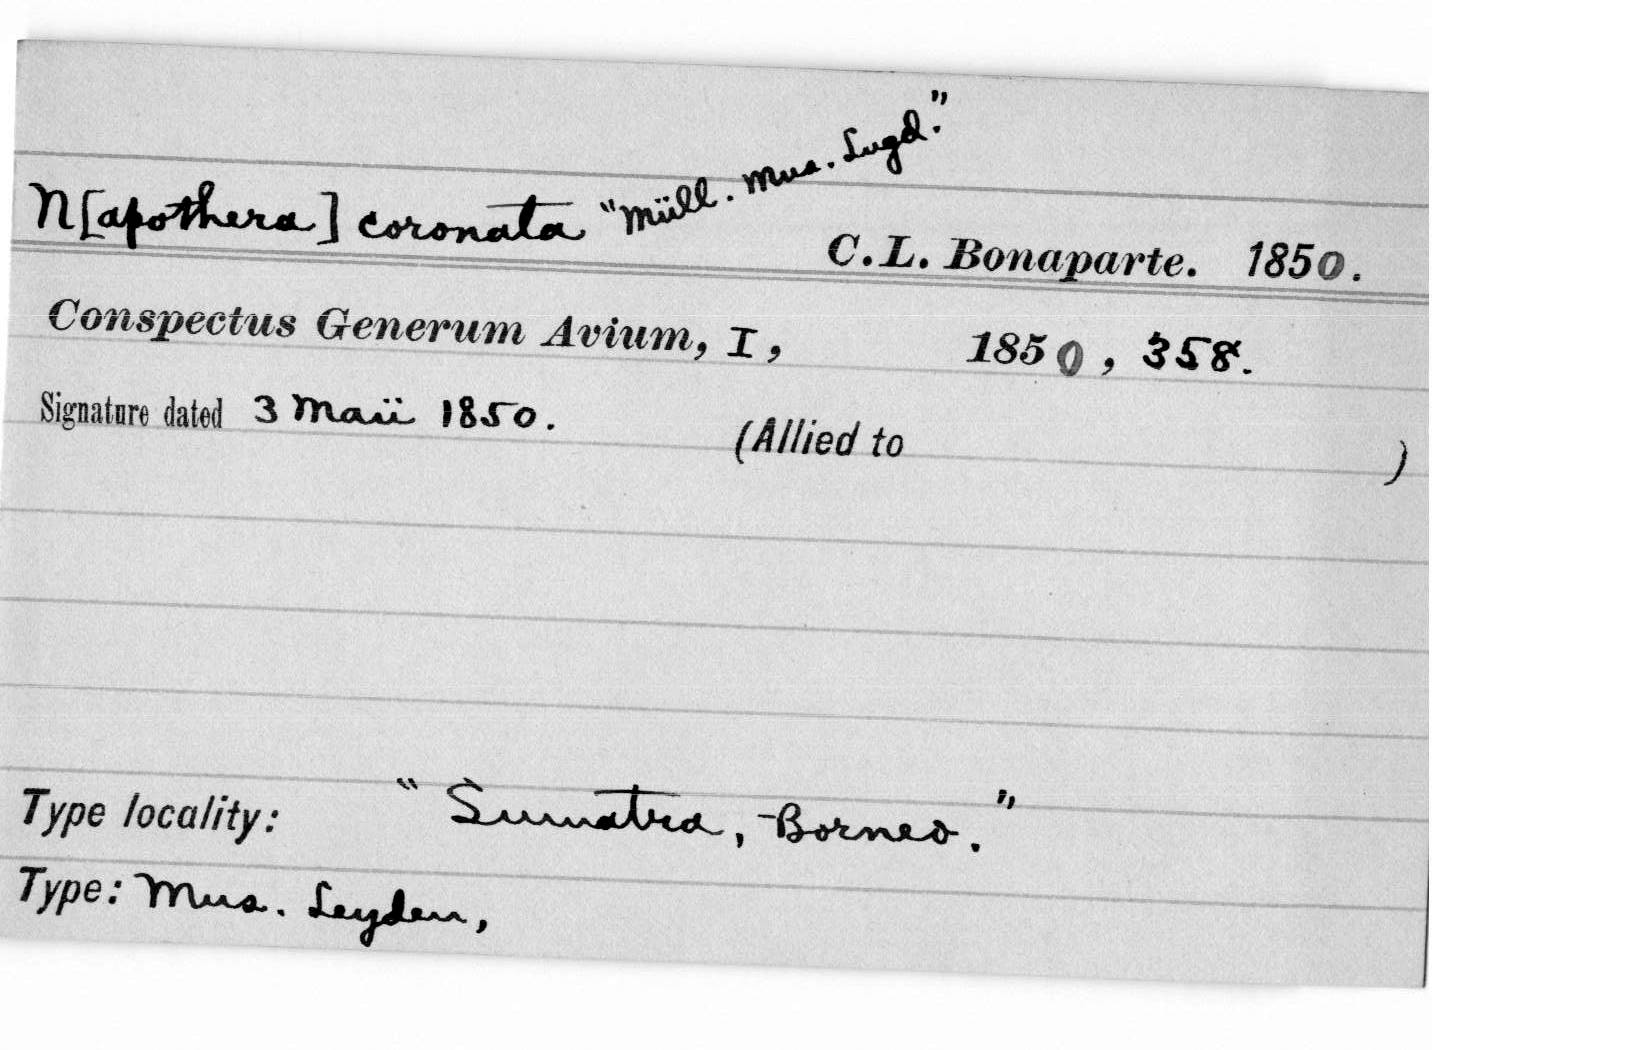 N[apothera] coronata "Müll. Mus. Lugd."
C.L. Bonaparte. 1850.
Conspectus Generum Avium, I, 1850, 358.
Signature dated 3 Maii 1850.
(Allied to )
Type locality: "Sumatra, Borneo."
Type: Mus. Leyden,